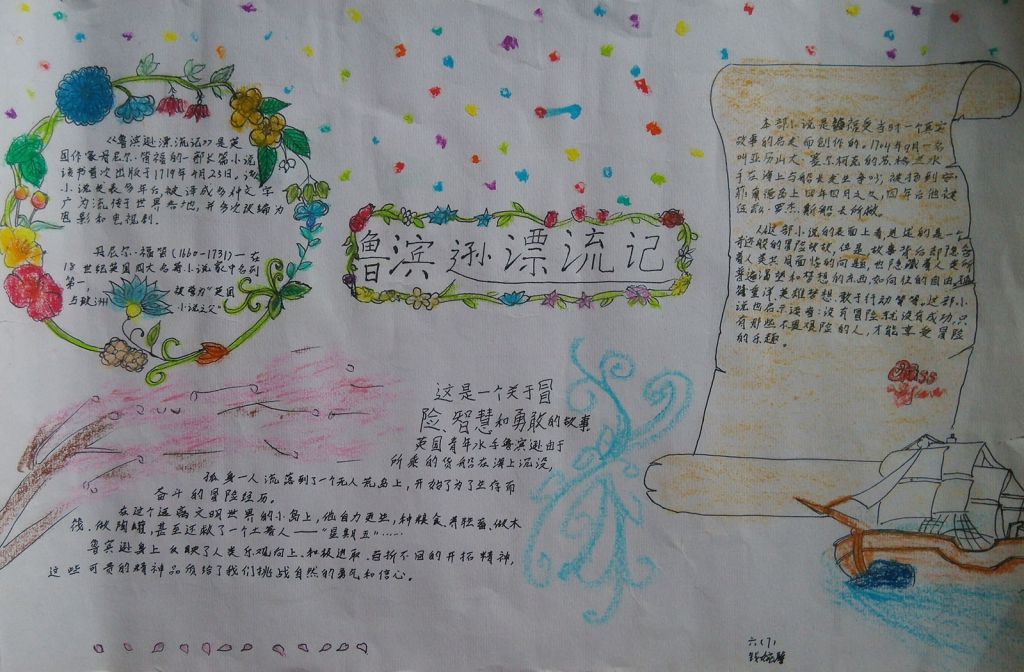 《鲁滨逊漂流记》是英
国作家丹尼尔·笛福的一部长篇小说
该书首次出版于1719年4月25日。该
小说发表多年后，被译成多种文字
广为流传于世界各地，并多次改编为
电影和电视剧。
丹尼尔·笛福（1660-1731）一在
18世纪英国四大名著小说家中名列
第一，
被誉为“英国
与欧洲
小说之父”
鲁滨逊漂流记
这是一个关于冒
险、智慧和勇敢的故事
英国青年水手鲁滨逊由于
所乘的货船在海上沉没，
孤身一人流落到了一个无人荒岛上，开始了为了生存而
奋斗的冒险经历。
在这个远离文明世界的小岛上，他自力更生，种粮食、养牲畜、做木
筏、做陶罐，甚至还救了一个土著人——“星期五”……
鲁滨逊身上反映了人类乐观向上、积极进取、百折不回的开拓精神，
这些可贵的精神品质给了我们挑战自然的勇气和信心。
本部小说是受当时一个真实
故事的启发而创作的。1704年9月一名
叫亚历山大·塞尔柯克的苏格兰水
于在海上与船长发生争吵，被抛到安
菲南德岛上四年四月之久，四年后他被
伍兹·罗杰斯船长所救。
从这部小说的表面上看，讲述的是一个
的冒险故事，但是故事背后却隐含
着人类共同面临的问题，也隐藏着人类所
渴望和梦想的东西，如向往的自由
重洋英雄梦想、敢于行动等等，这部小
说也启示读者：没有冒险就没有成功，只
有那些不畏艰险的人，才能享受冒险
的乐趣。
六（7）